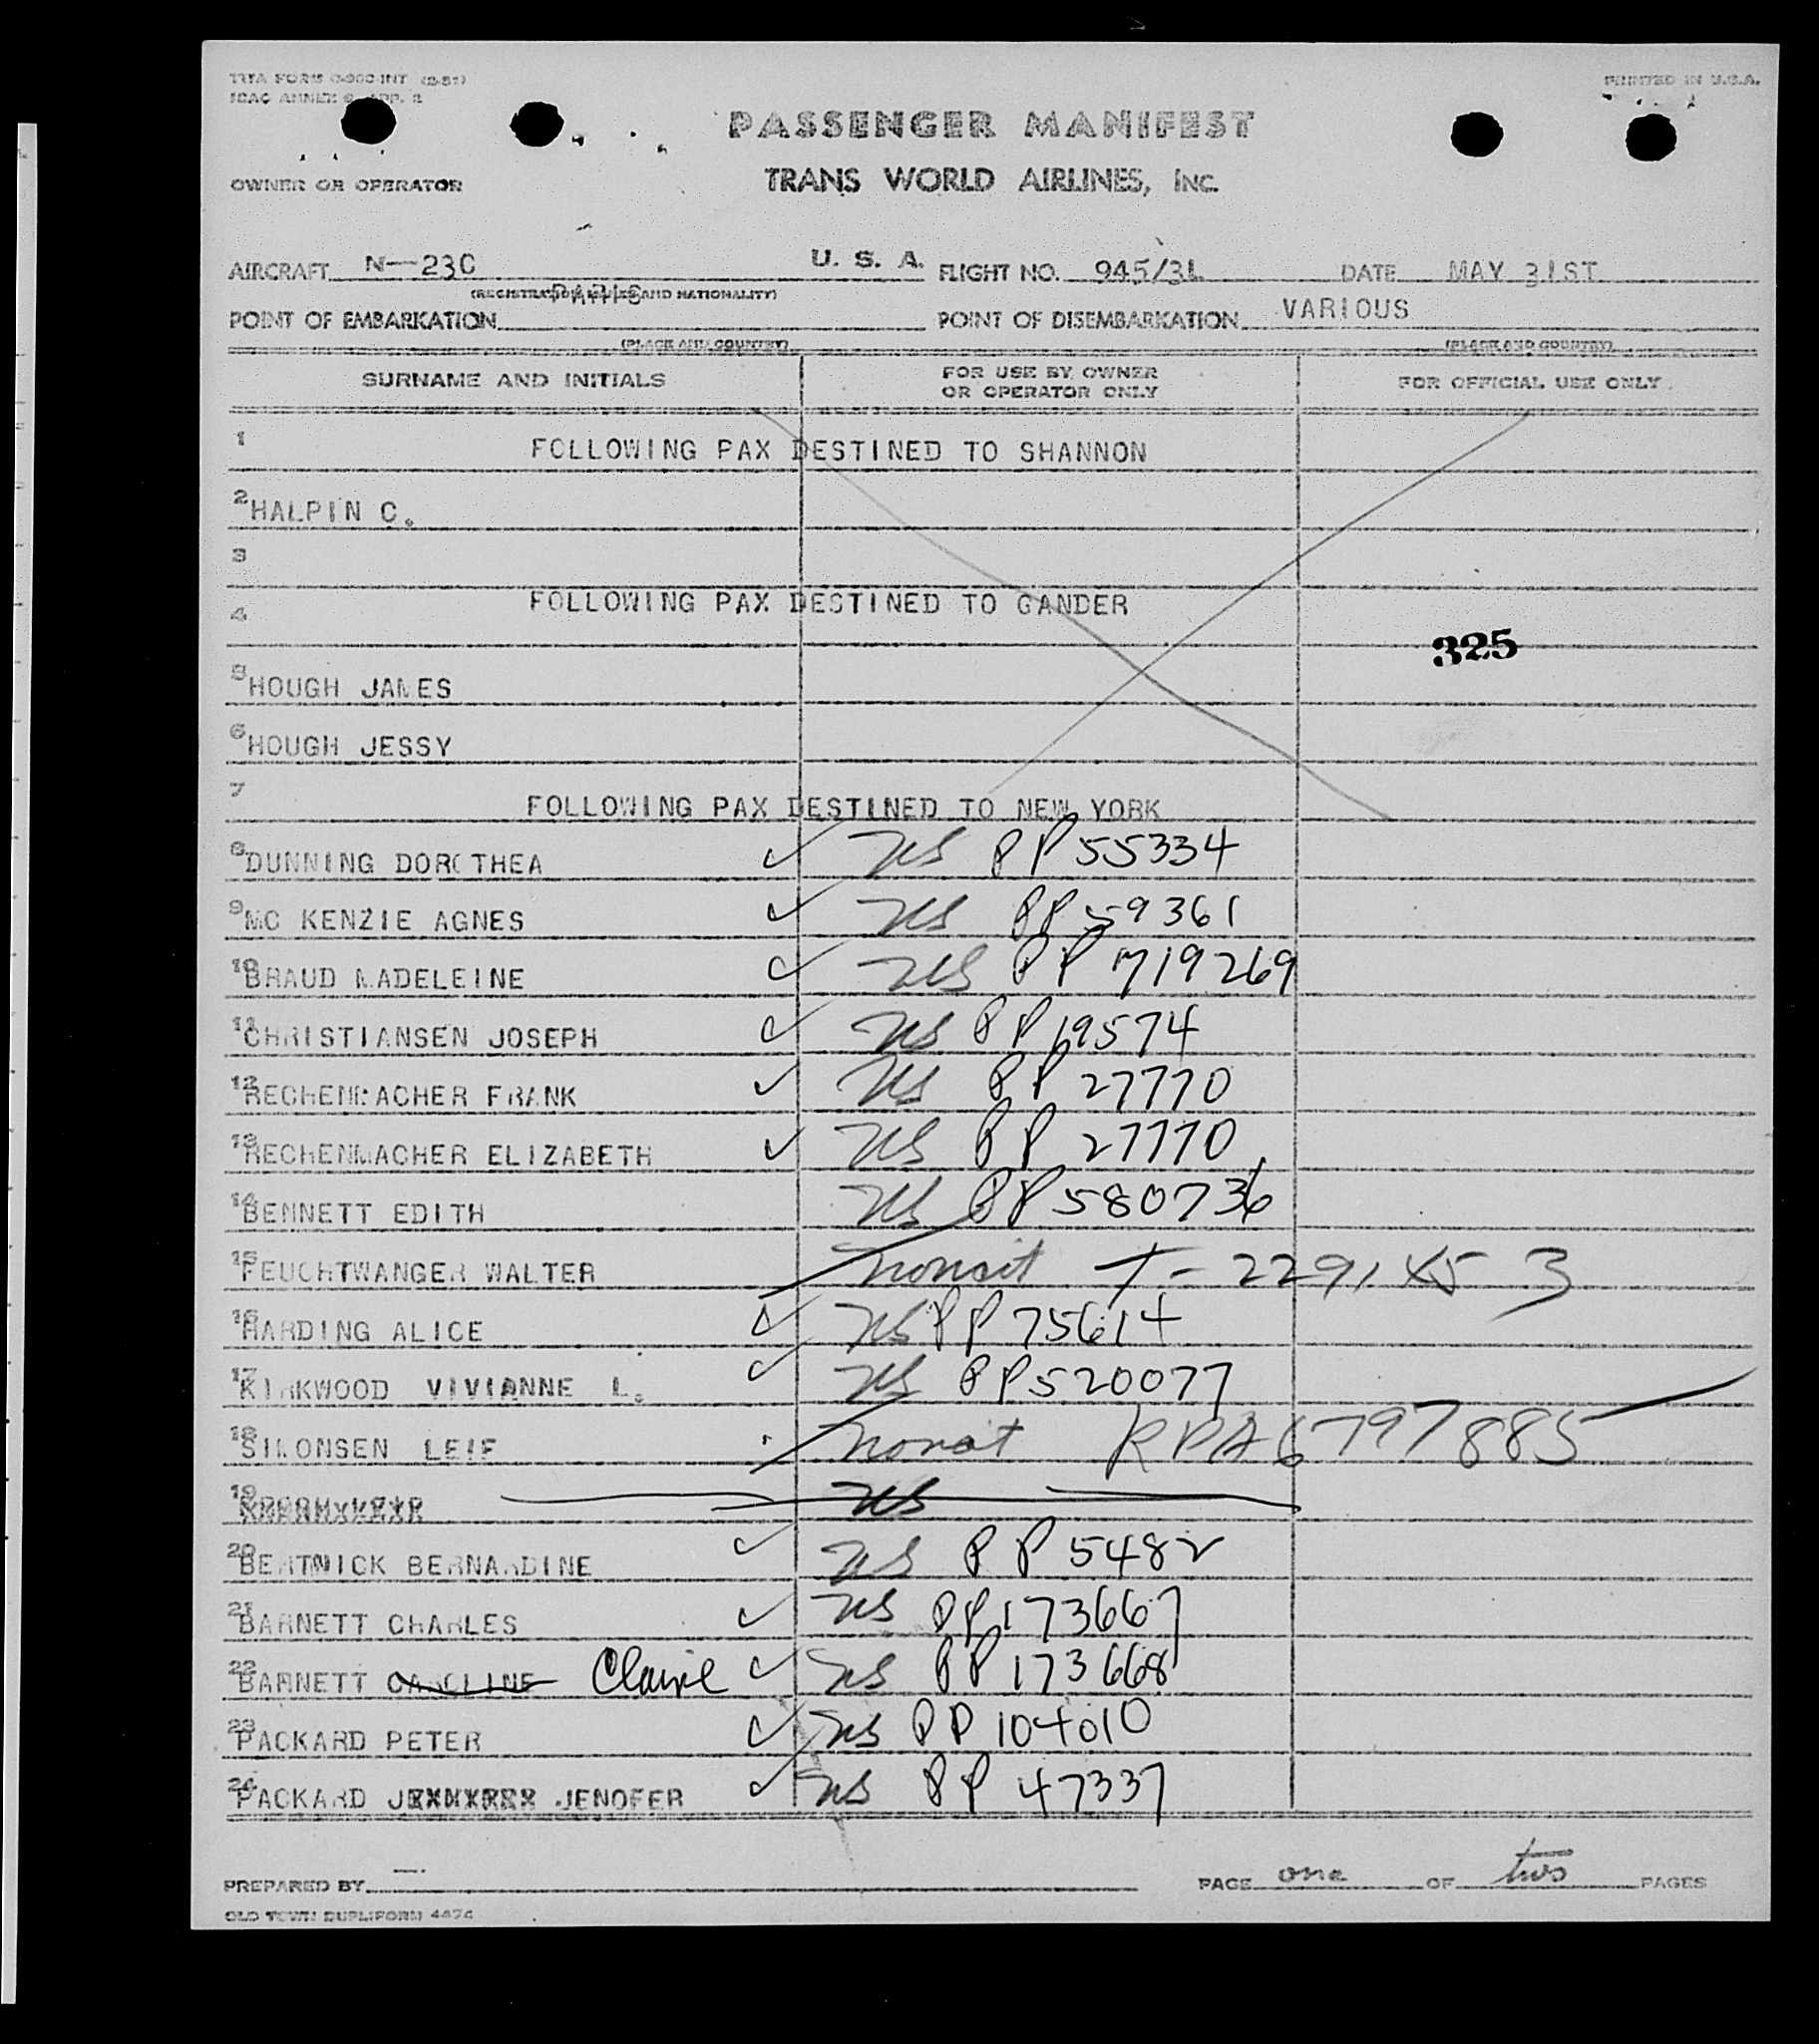 TWA FORM O-902-INT (2-51)
PRINTED IN U.S.A.
ICAO ANNEX 9, APP. 2
PASSENGER MANIFEST
OWNER OR OPERATOR TRANS WORLD AIRLINES, INC.
AIRCRAFT N-23C U. S. A. FLIGHT NO. 945/31 DATE MAY 31ST
(REGISTRATION MARKS AND NATIONALITY)
POINT OF EMBARKATION PARIS POINT OF DISEMBARKATION VARIOUS
(PLACE AND COUNTRY) (PLACE AND COUNTRY)
SURNAME AND INITIALS FOR USE BY OWNER OR OPERATOR ONLY FOR OFFICIAL USE ONLY
1 FOLLOWING PAX DESTINED TO SHANNON
2 HALPIN C.
3
4 FOLLOWING PAX DESTINED TO GANDER
325
5 HOUGH JAMES
6 HOUGH JESSY
7 FOLLOWING PAX DESTINED TO NEW YORK
8 DUNNING DOROTHEA ✓ US PP 55334
9 MC KENZIE AGNES ✓ US PP 59361
10 BRAUD MADELEINE ✓ US PP 719269
11 CHRISTIANSEN JOSEPH ✓ US PP 19574
12 RECHENMACHER FRANK ✓ US PP 27770
13 RECHENMACHER ELIZABETH ✓ US PP 27770
14 BENNETT EDITH US PP 580736
15 FEUCHTWANGER WALTER T-229,
16 HARDING ALICE ✓ US PP 75614
17 KIRKWOOD VIVIANNE L. ✓ US PP 520077
18 SIMONSEN LEIF 6797885
19 US
20 BERTWICK BERNARDINE ✓ US PP 5482
21 BARNETT CHARLES ✓ US PP 173667
22 BARNETT CAROLINE Claire ✓ US PP 173668
23 PACKARD PETER ✓ US PP 104010
24 PACKARD JENOFER ✓ US PP 47337
PREPARED BY PAGE one OF two PAGES
OLD TOWN DUPLIFORM 4474